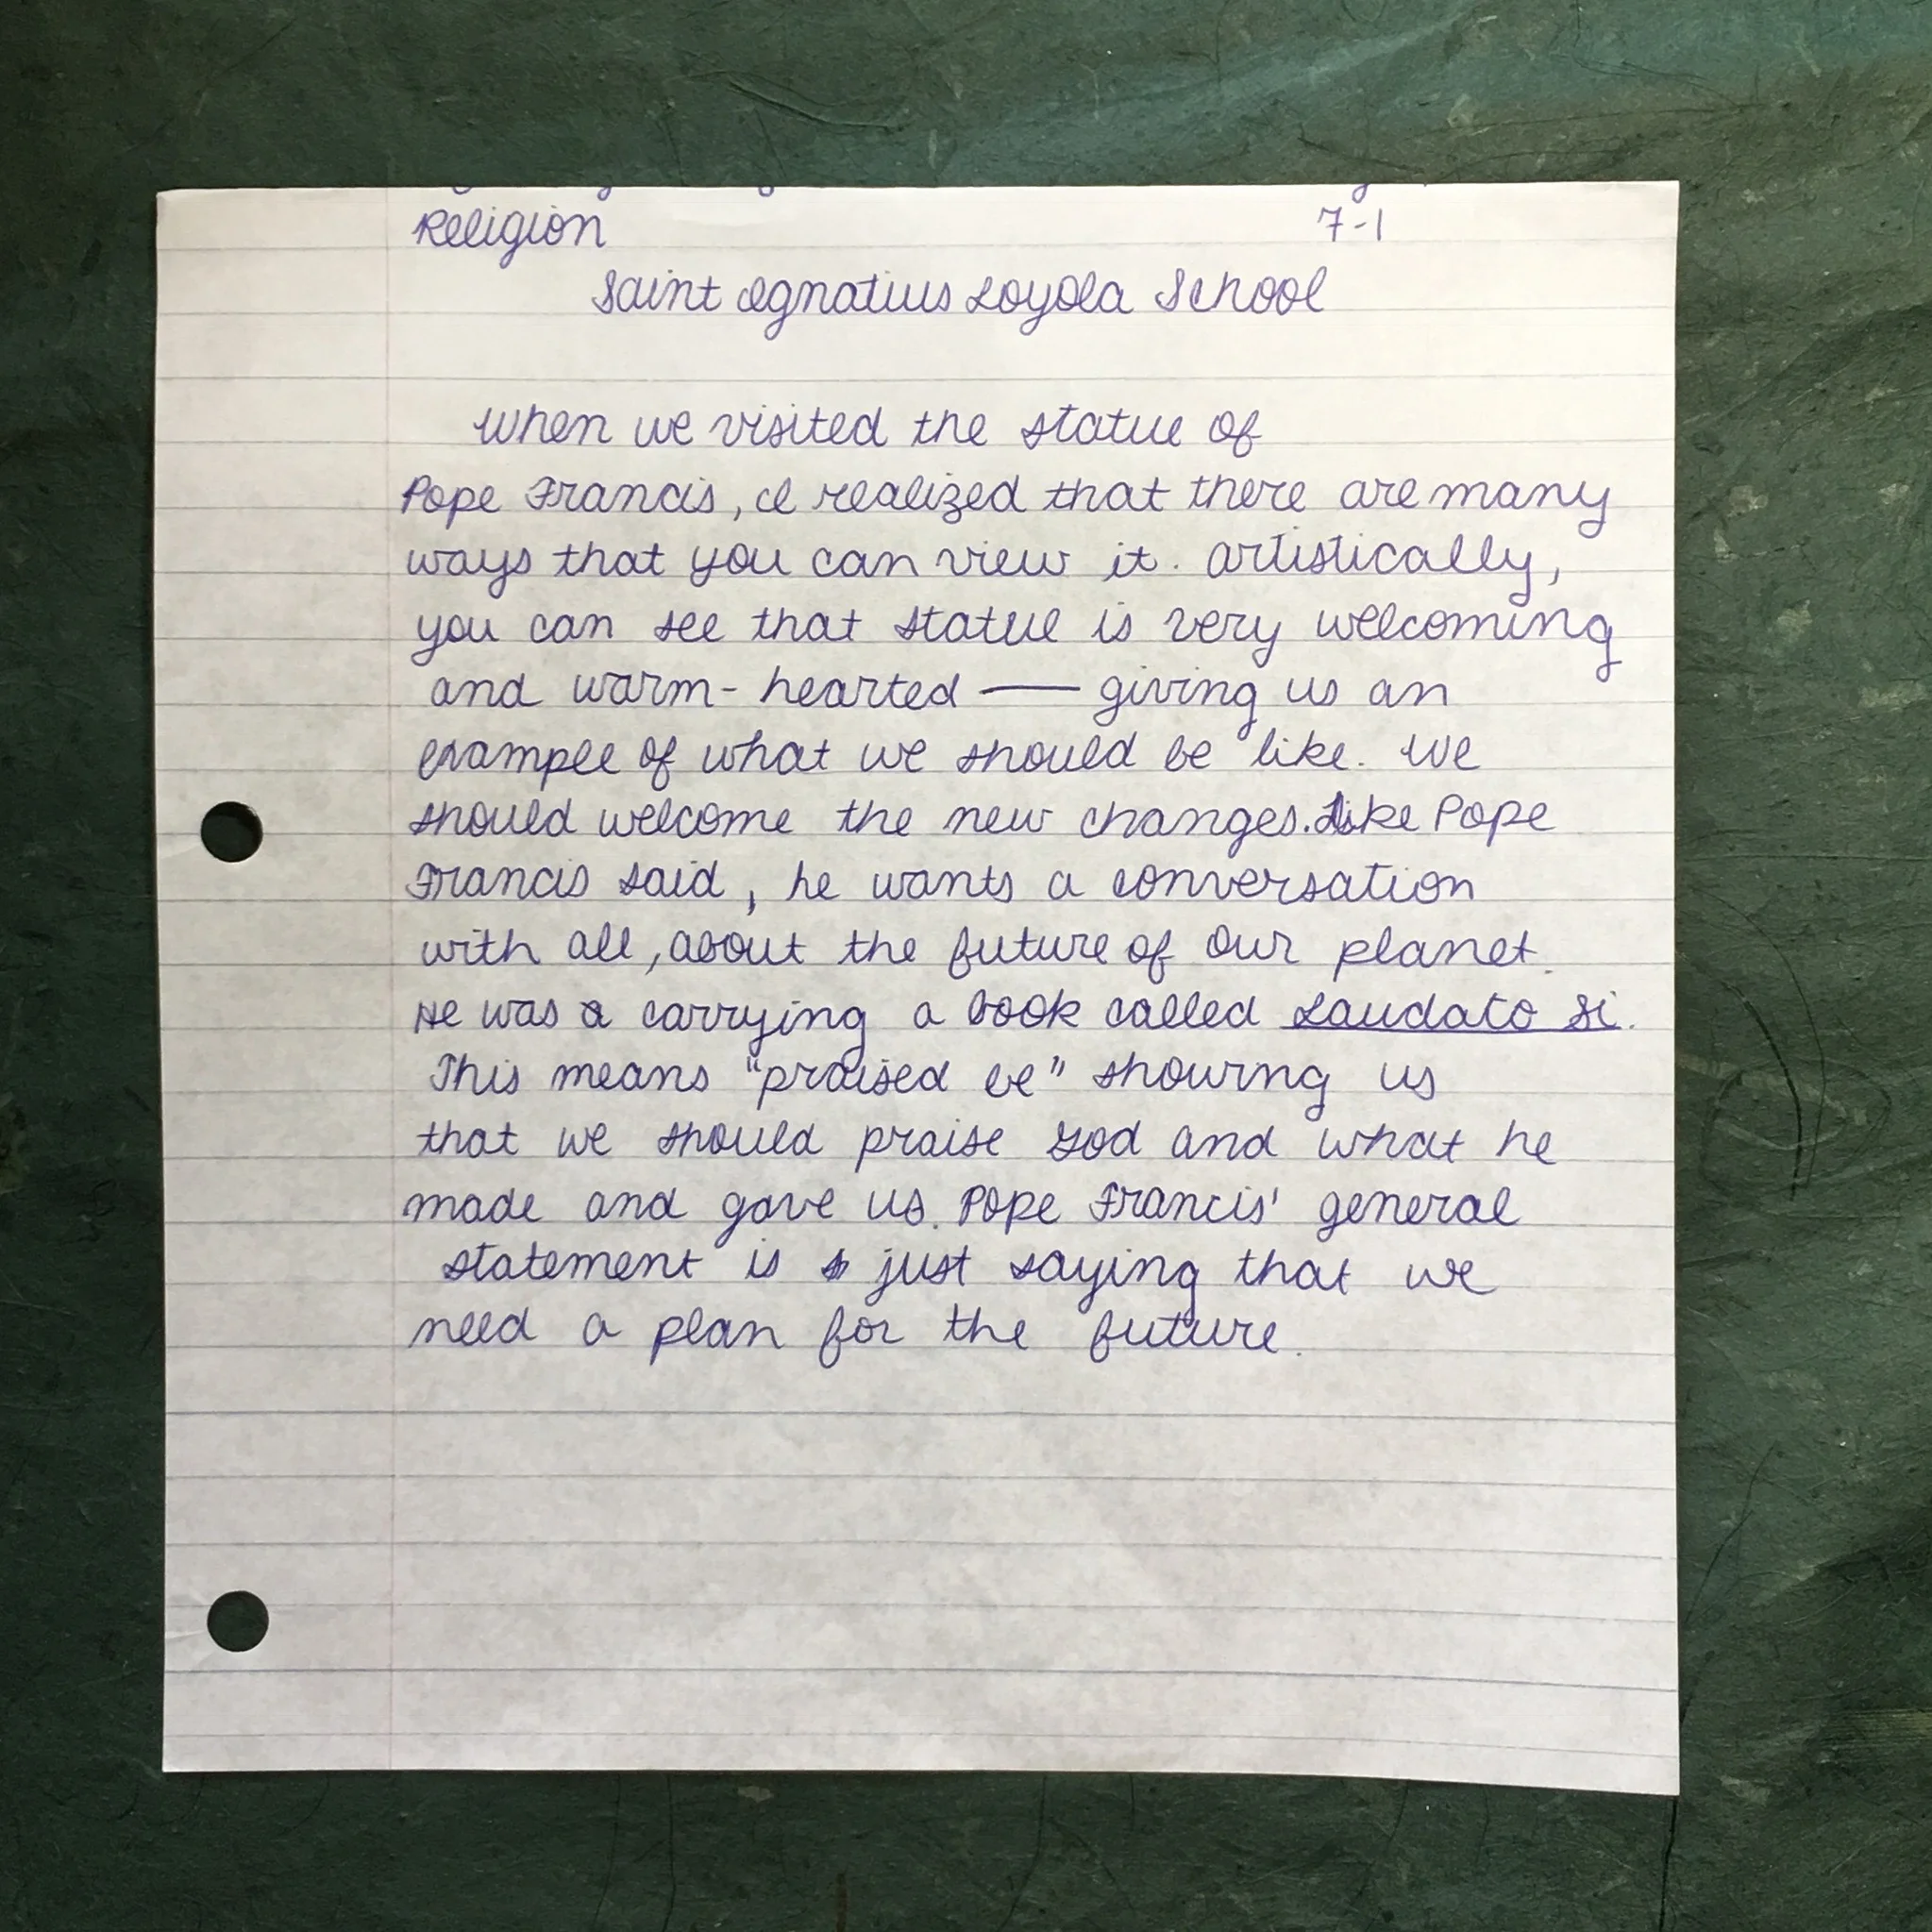 Religion 7-1
Saint Ignatius Loyola School
When we visited the statue of
Pope Francis, I realized that there are many
ways that you can view it. Artistically,
you can see that statue is very welcoming
and warm-hearted — giving us an
example of what we should be like. We
should welcome the new changes. Like Pope
Francis said, he wants a conversation
with all, about the future of our planet.
He was a carrying a book called Laudato Si.
This means "praised be" showing us
that we should praise God and what he
made and gave us. Pope Francis' general
statement is just saying that we
need a plan for the future.